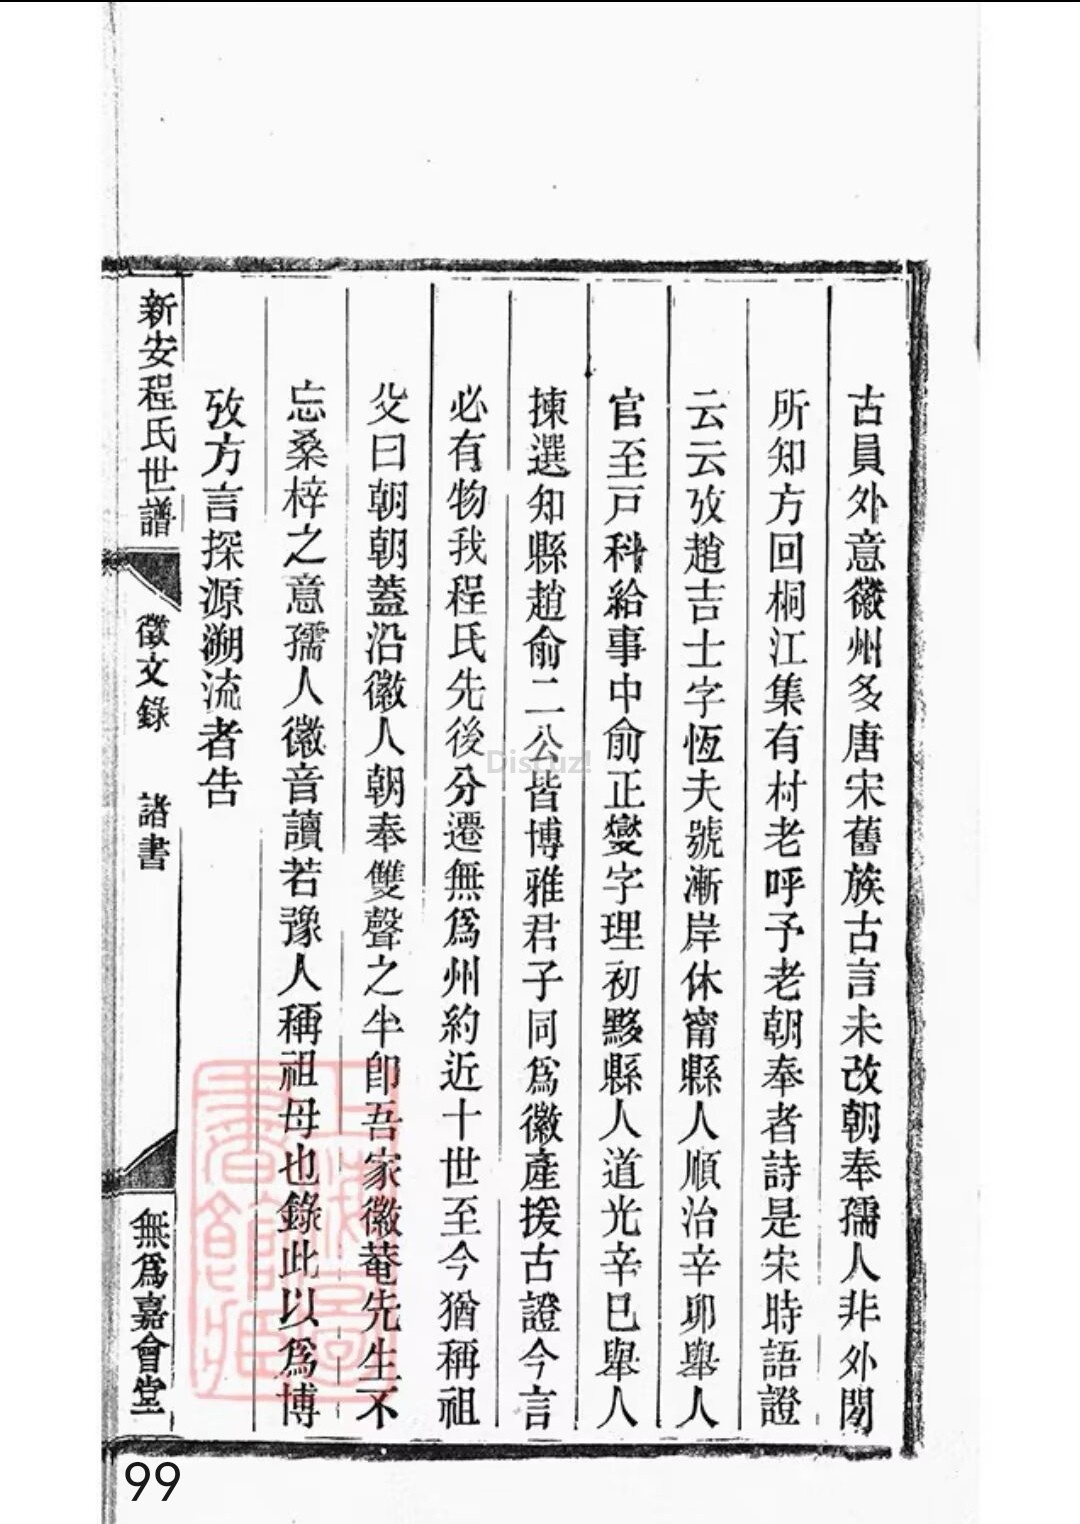 古員外意徽州多唐宋舊族古言未改朝奉孺人非外閒
所知方回桐江集有村老呼予老朝奉者詩是宋時語證
云云攷趙吉士字恆夫號漸岸休甯縣人順治辛卯舉人
官至戸科給事中俞正燮字理初黟縣人道光辛巳舉人
揀選知縣趙俞二公皆博雅君子同爲徽產援古證今言
必有物我程氏先後分遷無爲州約近十世至今猶稱祖
父曰朝朝蓋沿徽人朝奉雙聲之半卽吾家徽菴先生不
忘桑梓之意孺人徽音讀若豫人稱祖母也錄此以爲博
攷方言探源溯流者告
新安程氏世譜
徵文錄 諸書
無爲嘉會堂
上海圖書館藏
Discuz!
99